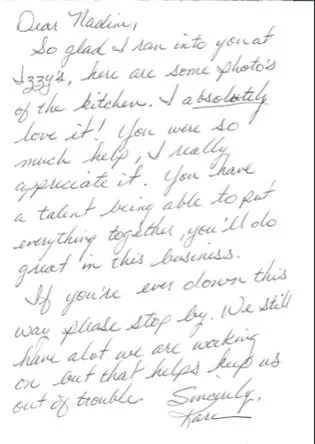 Dear Nadine,
So glad I ran into you at
Izzy's, here are some photo's
of the kitchen. I absolutely
love it! You were so
much help, I really
appreciate it. You have
a talent being able to put
everything together, you'll do
great in this business.
If you're ever down this
way please stop by. We still
have alot we are working
on but that helps keep us
out of trouble. Sincerely,
Kare